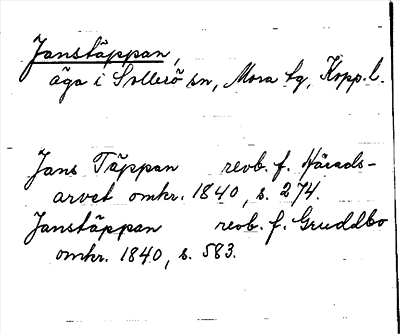 Janstäppan,
äga i Sollerö sn, Mora tg, Kopp. l.
Jans Täppan reob. f. Härads-
arvet omkr. 1840, s. 274.
Janstäppan reob. f. Gruddbo
omkr. 1840, s. 583.